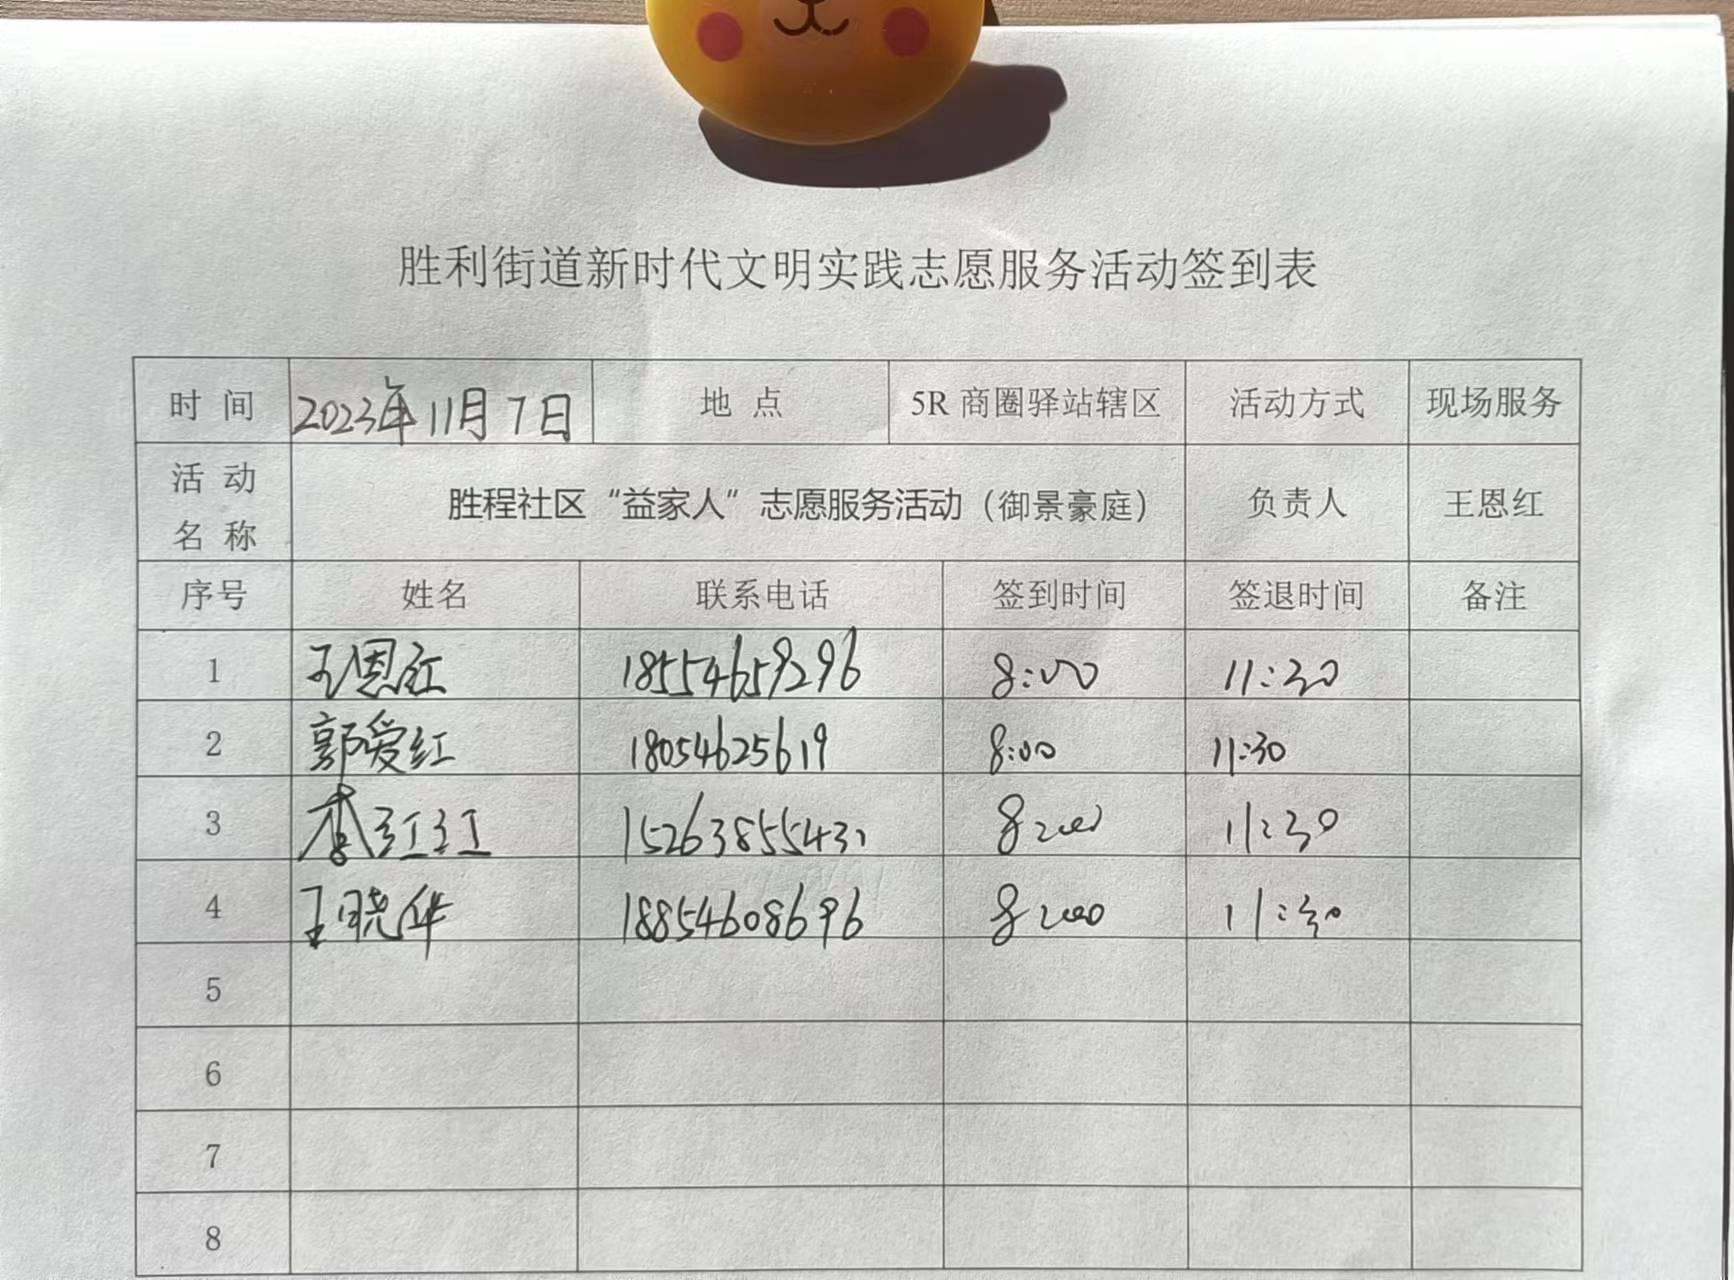 胜利街道新时代文明实践志愿服务活动签到表
时 间 2023年11月7日 地 点 5R 商圈驿站辖区 活动方式 现场服务
活 动 名 称 胜程社区“益家人”志愿服务活动（御景豪庭） 负责人 王恩红
序号 姓名 联系电话 签到时间 签退时间 备注
1 王恩红 18554659296 8:00 11:30
2 郭爱红 18054625619 8:00 11:30
3 李红红 15263855431 8:00 11:30
4 王晓华 18854608696 8:00 11:30
5
6
7
8